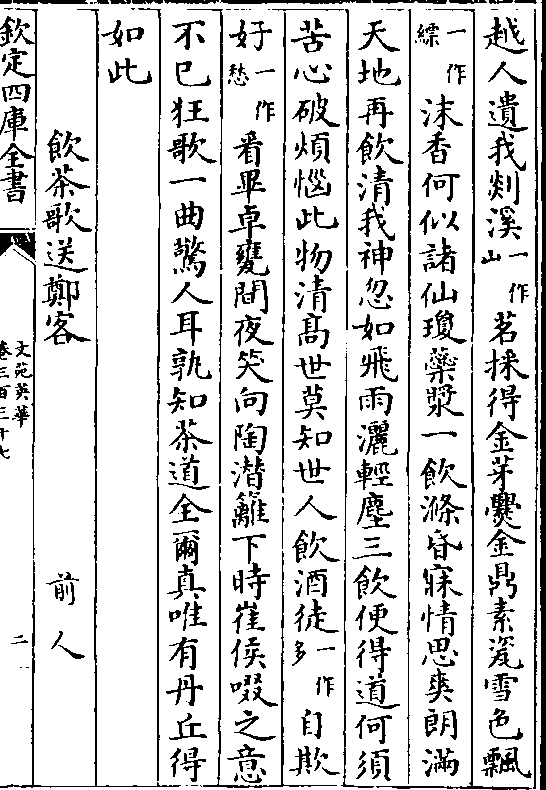 越人遺我剡溪一作山茗採得金芽爨金鼎素瓷雪色飄
一作縹沫香何似諸仙瓊蘂漿一飲滌昏寐情思爽朗滿
天地再飲清我神忽如飛雨灑輕塵三飲便得道何須
苦心破煩惱此物清髙世莫知世人飲酒徒一作多自欺
好一作愁看畢卓甕間夜笑向陶潛籬下時崔侯啜之意
不已狂歌一曲驚人耳孰知茶道全爾真唯有丹丘得
如此
飲茶歌送鄭客　前人
欽定四庫全書
文苑英華
卷三百三十七
二